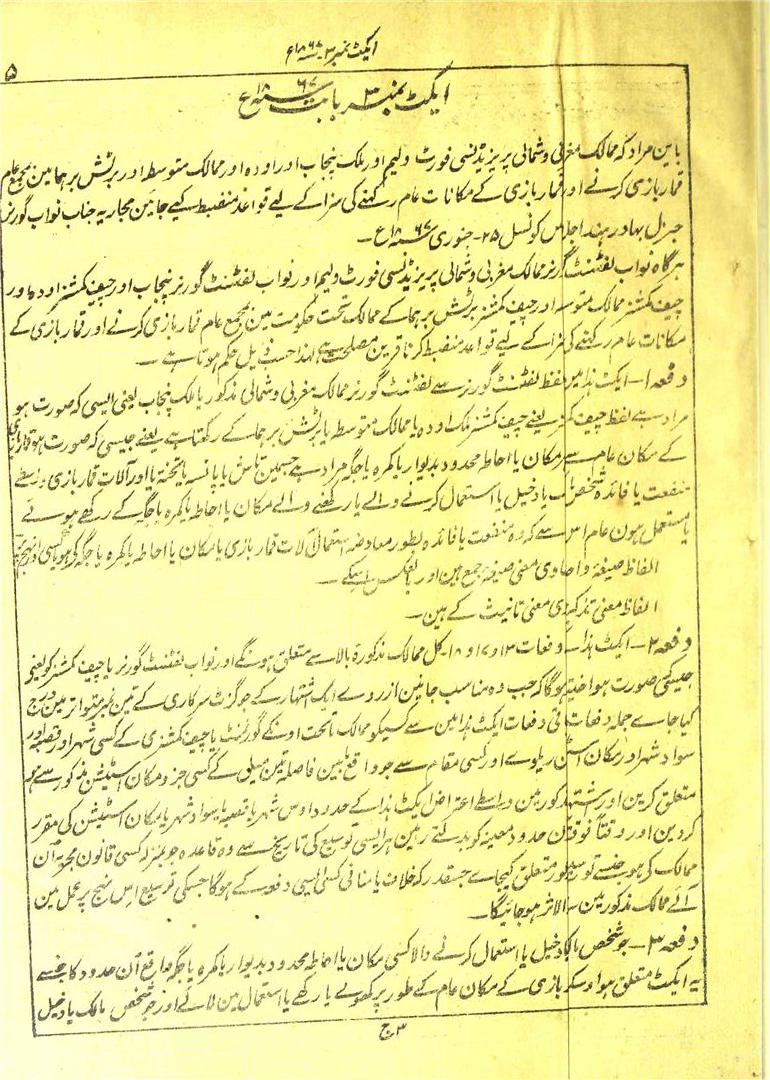 ایکٹ نمبر ۳ سنہ ۱۸۶۷ع
۵
ایکٹ نمبر ۳ بابت سنہ ۱۸۶۷ع
باین مراد کہ ممالک مغربی و شمالی پریزیڈنسی فورٹ ولیم اور ملک پنجاب اور اودہ اور ممالک متوسط اور برٹش برہما مین بمجمع عام
قمار بازی کرنے اور قمار بازی کے مکانات عام رکھنے کی سزا کے لیے قواعد منضبط کیے جاین مجاریہ جناب نواب گورنر
جنرل بہادر ہند اجلاس کونسل ۲۵۔ جنوری سنہ ۱۸۶۷ع۔
ہرگاہ نواب لفٹننٹ گورنر ممالک مغربی و شمالی پریزیڈنسی فورٹ ولیم اور نواب لفٹننٹ گورنر پنجاب اور چیف کمشنر اودہ اور
چیف کمشنر ممالک متوسط اور چیف کمشنر برٹش برہما کے ممالک تحت حکومت مین بمجمع عام قمار بازی کرنے اور قمار بازی کے
مکانات عام رکھنے کی سزا کے لیے قواعد منضبط کرنا قرین مصلحت ہے لہذا حسب ذیل حکم ہوتا ہے۔
دفعہ ۱۔ ایکٹ ہذا مین لفظ لفٹننٹ گورنر سے لفٹننٹ گورنر ممالک مغربی و شمالی مذکور یا ملک پنجاب یعنی جیسی کہ صورت ہو
مراد ہے لفظ چیف کمشنر سے چیف کمشنر ملک اودہ یا ممالک متوسط یا برٹش برہما کے رکھتا ہے یعنے جیسی کہ صورت ہو قمار بازی
کے مکان عام سے مکان یا احاطہ محدود بدیوار یا کمرہ یا جگہ مراد ہے جسمین تاش یا پانسہ یا تختہ یا اور آلات قمار بازی واسطے
منفعت یا فائدہ شخص مالک یا دخیل یا استعمال کرنے والے یا رکھنے والے مکان یا احاطہ یا کمرہ یا جگہ کے رکھے ہوئے
یا مستعمل ہون عام اس سے کہ وہ منفعت یا فائدہ بطور معاوضہ استعمال آلات قمار بازی یا مکان یا احاطہ یا کمرہ یا جگہ کے ہو یا کسی اور نہج پر
الفاظ صیغہ واحد حاوی معنی صیغہ جمع ہین اور بالعکس اسکے۔
الفاظ معنی تذکیر حاوی معنی تانیث کے ہین۔
دفعہ ۲۔ ایکٹ ہذا۔ دفعات ۱۳ و ۱۷ و ۱۸۔ کل ممالک مذکورہ بالا سے متعلق ہونگے اور نواب لفٹننٹ گورنر یا چیف کمشنر کو یعنی
جیسی کہ صورت ہو اختیار ہوگا کہ جب وہ مناسب جانین از روے ایک اشتہار کے جو گزٹ سرکاری کے تین نمبر متواتر مین درج
کیا جاے جملہ دفعات باقی دفعات ایکٹ ہذا مین سے کسیکو ممالک ماتحت اونکے گورنمنٹ یا چیف کمشنری کے کسی شہر اور قصبہ اور
سواد شہر اور مکان اسٹیشن ریلوے اور کسی مقام سے جو واقع مابین فاصلہ تین میل کے کسی جزو مکان اسٹیشن مذکور سے ہو
متعلق کرین اور اشتہار مذکور مین واسطے اعتراض ایکٹ ہذا کے حدود اوس شہر یا قصبہ یا سواد شہر یا مکان اسٹیشن کی مقرر
کردین اور وقتاً فوقتاً حدود معینہ کو بدلتے رہین ہر ایسی توسیع کی تاریخ سے وہ قاعدہ جو بمنزلہ کسی قانون مجریہ اُن
ممالک کے ہو جنسے توسیع متعلق کیجاے جسقدر کہ خلاف یا منافی کسی ایسی دفعہ کے ہوگا جسکی توسیع اس نہج پر عمل مین
آئے ممالک مذکور مین بے الاثر ہو جائیگا۔
دفعہ ۳۔ جو شخص مالک یا دخیل یا استعمال کرنے والا کسی مکان یا احاطہ محدود بدیوار یا کمرہ یا جگہ واقع اُن حدود کا جنسے
یہ ایکٹ متعلق ہو اوسکو قمار بازی کے مکان عام کے طور پر کھولے یا رکھے یا استعمال مین لائے اور جو شخص مالک یا دخیل
۳ ج